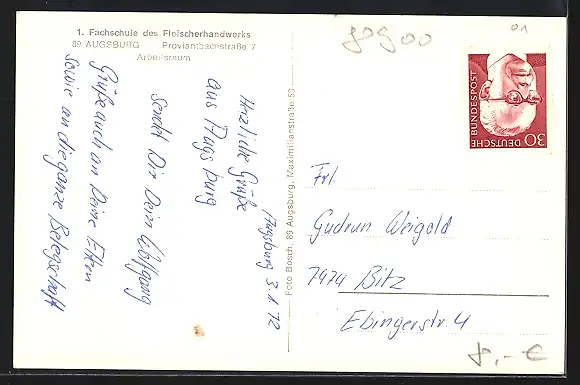 1. Fachschule des Fleischerhandwerks
89 AUGSBURG Proviantbachstraße 7
Arbeitsraum
Augsburg 3.1.72
Herzliche Grüße
aus Augsburg
sendet Dir Dein Wolfgang
Grüße auch an Deine Eltern
sowie an die ganze Belegschaft
Foto Bosch, 89 Augsburg, Maximilianstraße 53
DEUTSCHE BUNDESPOST
30
Frl.
Gudrun Weigold
7474 Bitz
Ebingerstr. 4
8,- €